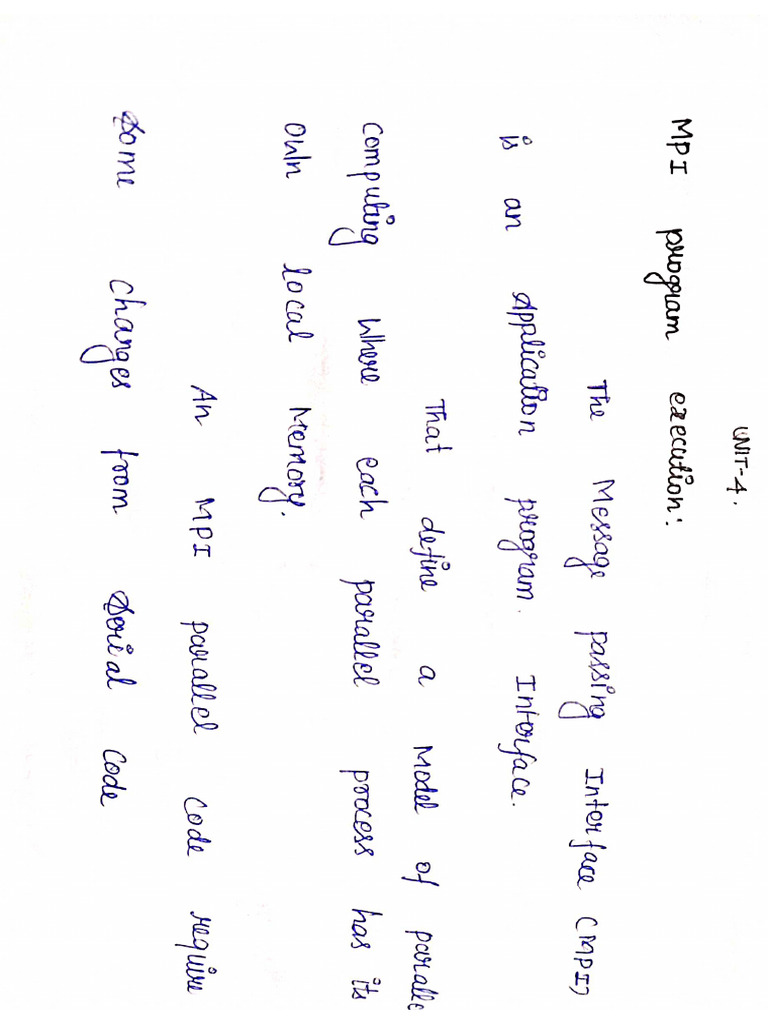 UNIT-4.
MPI program execution:
The Message passing Interface (MPI)
is an Application program. Interface.
That define a Model of paralle
computing where each parallel process has its
own local Memory.
An MPI parallel code require
Some changes from Serial code